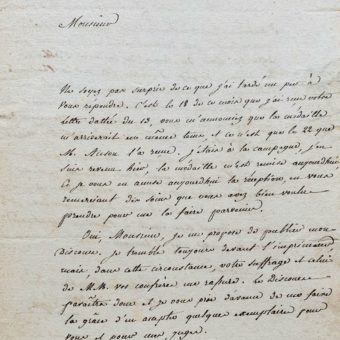 Monsieur
Ne soyez pas surpris de ce que j'ai tardé un peu à
vous repondre. C'est le 18 de ce mois que j'ai reçu votre
lettre dattée du 13, vous m'annonciez que la médaille
m'arriverait en même tems et ce n'est que le 22 que
M. l'a reçue. J'étais à la campagne, j'en
suis revenu hier, la médaille m'est remise aujourdhui
et je vous en accuse aujourdhui la réception, en vous
remerciant des soins que vous avez bien voulu
prendre pour me la faire parvenir.
Oui, Monsieur, je me propose de publier mon
Discours. Je tremble toujours devant l'imprimeur
mais dans cette circonstance, votre suffrage et celui
de M.M. vos confrères me rassure. Le Discours
paraîtra donc et je vous prie d'avance de me faire
la grâce d'en accepter quelques exemplaires pour
vous et pour mes juges.